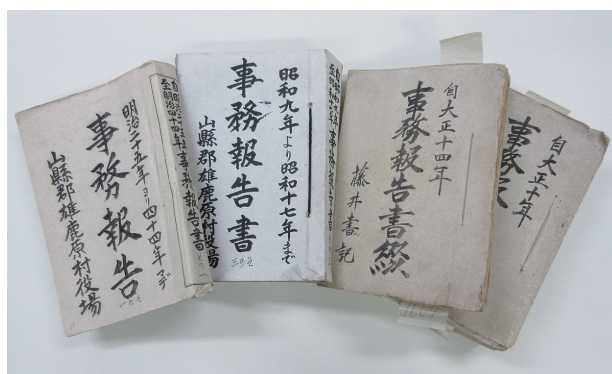 明治二十五年ヨリ四十四年マデ
事務報告
一のそ
山縣郡雄鹿原村役場
至明治四十四年事務報告書
昭和九年より昭和十七年まで
事務報告書
三のそ
山縣郡雄鹿原村役場
自大正十四年
事務報告書綴
藤井書記
自大正十年
事務